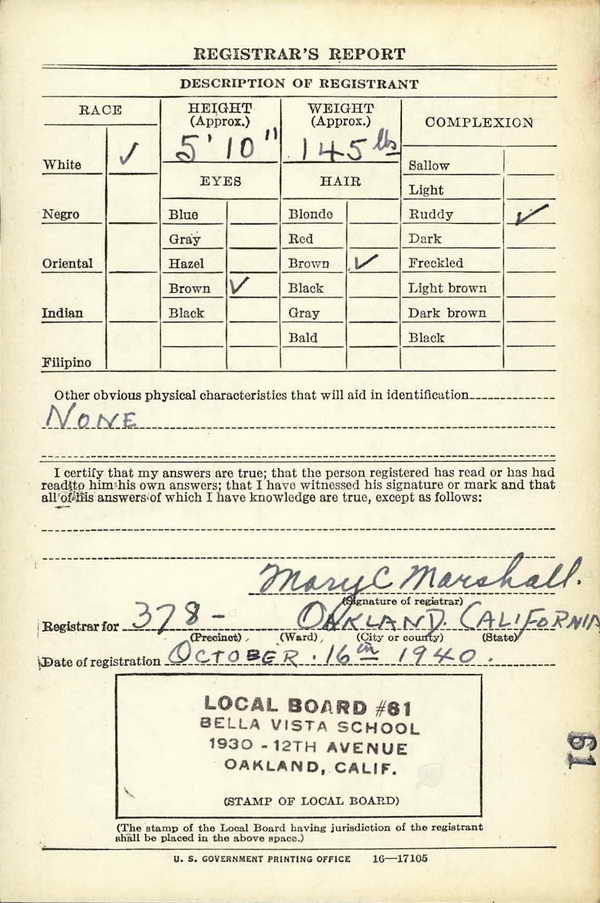 REGISTRAR'S REPORT
DESCRIPTION OF REGISTRANT
RACE
HEIGHT (Approx.)
WEIGHT (Approx.)
COMPLEXION
5' 10"
145 lbs
White ✓
EYES
HAIR
Sallow
Light
Negro
Blue
Blonde
Ruddy ✓
Gray
Red
Dark
Oriental
Hazel
Brown ✓
Freckled
Brown ✓
Black
Light brown
Indian
Black
Gray
Dark brown
Bald
Black
Filipino
Other obvious physical characteristics that will aid in identification
NONE
I certify that my answers are true; that the person registered has read or has had
read to him his own answers; that I have witnessed his signature or mark and that
all of his answers of which I have knowledge are true, except as follows:
Mary C Marshall.
(Signature of registrar)
Registrar for 378 - OAKLAND. CALIFORNIA
(Precinct) (Ward) (City or county) (State)
Date of registration OCTOBER 16th 1940.
LOCAL BOARD #61
BELLA VISTA SCHOOL
1930 - 12TH AVENUE
OAKLAND, CALIF.
(STAMP OF LOCAL BOARD)
61
(The stamp of the Local Board having jurisdiction of the registrant
shall be placed in the above space.)
U. S. GOVERNMENT PRINTING OFFICE 16—17105